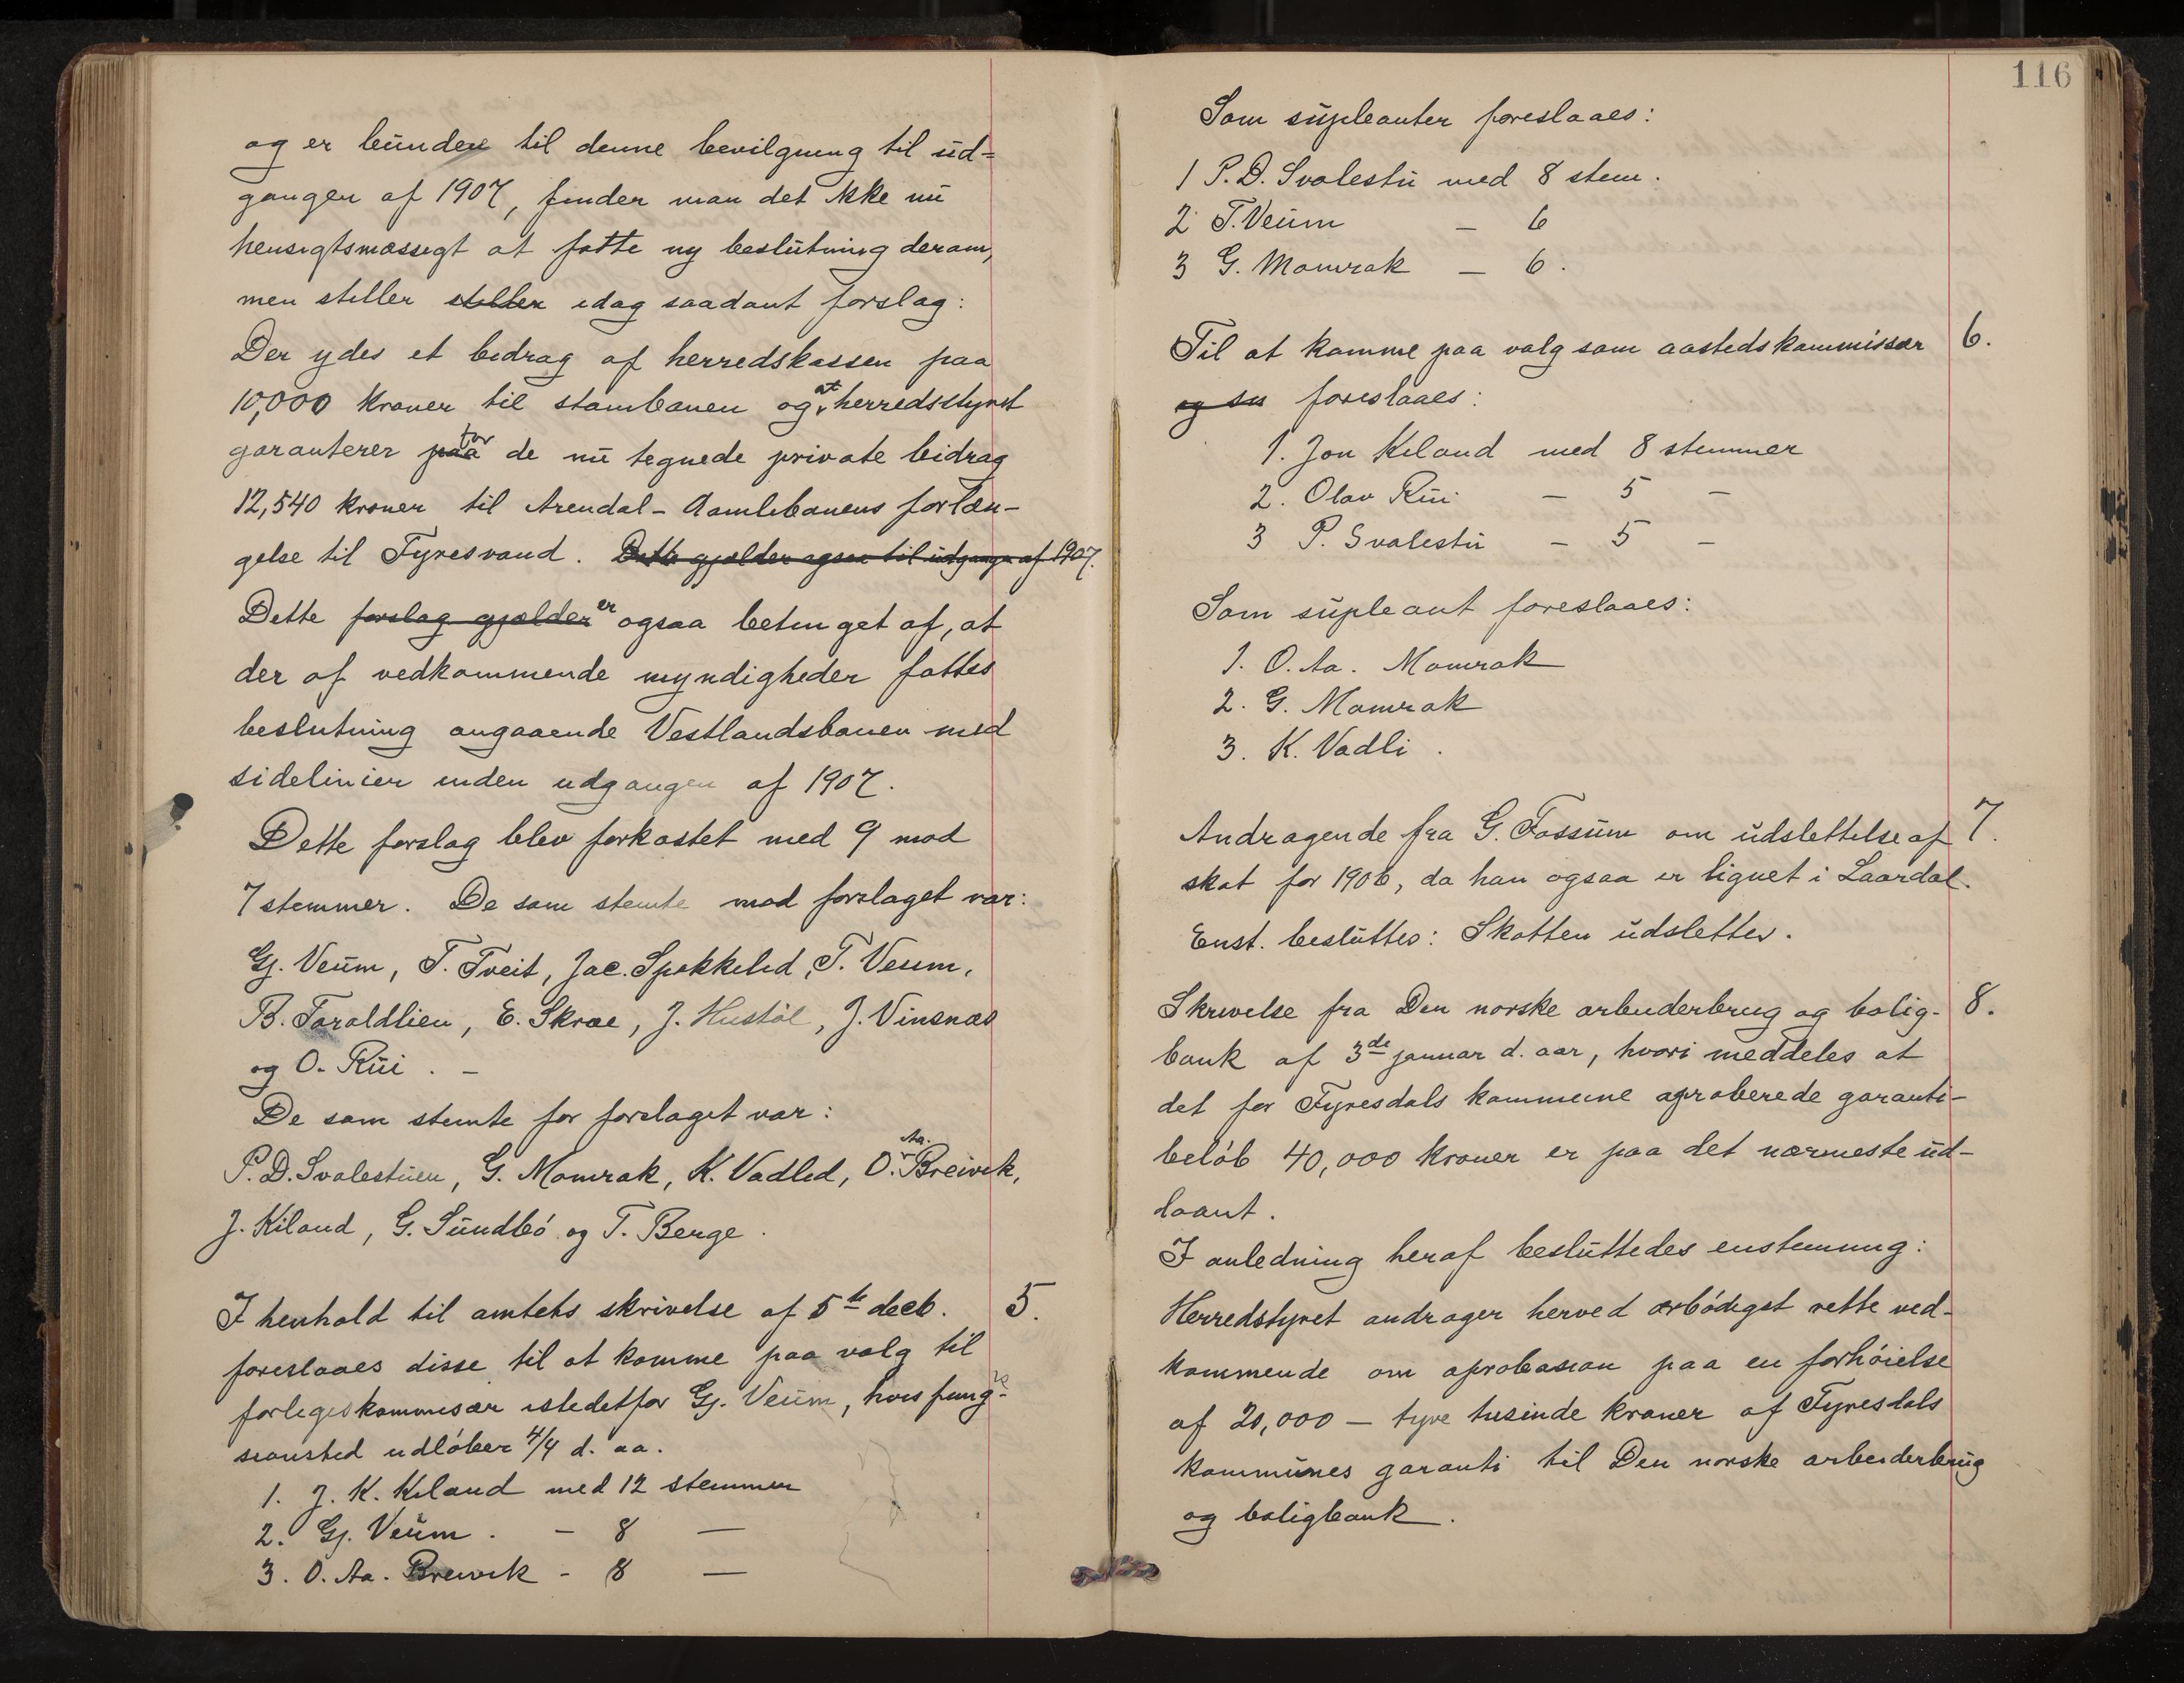 og er bunden til denne bevilgning til ud-
gangen af 1907, finder man det ikke nu
hensigtsmæssigt at fatte ny beslutning derom,
men stiller stiller idag saadant forslag:
Der ydes et bidrag af herredskassen paa
10,000 kroner til stambanen og at herredsstyret
garanterer paa for de nu tegnede private bidrag
12,540 kroner til Arendal-Aamlibanens forlæn-
gelse til Fyresvand. Dette gjælder ogsaa til udgangen af 1907.
Dette forslag gjælder er ogsaa betinget af, at
der af vedkommende myndigheder fattes
beslutning angaaende Vestlandsbanen med
sidelinier inden udgangen af 1907.
Dette forslag blev forkastet med 9 mod
7 stemmer. De som stemte mod forslaget var:
Gj. Veum, T. Tveit, Jac. Spokkelid, T. Veum,
B. Taraldlien, E. Skrae, J. Hustøl, J. Vinsnæs
og O. Rui. -
De som stemte for forslaget var:
P. D. Svalestuen, G. Momrak, K. Vadlid, O. Aa. Breivik,
J. Kiland, G. Sundbø og T. Berge.
I henhold til amtets skrivelse af 5te decb. 5.
foreslaaes disse til at komme paa valg til
forligeskommisær istedetfor Gj. Veum, hvis fung-
sionstid udløber 4/4 d. aa.
1. J. K. Kiland med 12 stemmer
2. Gj. Veum. - 8 —
3. O. Aa. Breivik - 8 —
116
Som supleanter foreslaaes:
1 P. D. Svalestu med 8 stem.
2 T. Veum — 6
3 G. Momrak — 6.
Til at komme paa valg som aastedskommissær 6.
og su foreslaaes:
1. Jon Kiland med 8 stemmer
2. Olav Rui — 5 —
3 P. Svalestu — 5 —
Som supleant foreslaaes:
1. O. Aa. Momrak
2. G. Momrak
3. K. Vadli.
Andragende fra G. Fossum om udslettelse af 7.
skat for 1906, da han ogsaa er lignet i Laardal.
Enst. besluttes: Skatten udslettes.
Skrivelse fra Den norske arbeiderbrug og bolig- 8.
bank af 3de januar d. aar, hvori meddeles at
det for Fyresdals kommune aproberede garanti-
beløb 40,000 kroner er paa det nærmeste ud-
laant.
I anledning heraf besluttedes enstemmig:
Herredstyret andrager herved ærbødigst rette ved-
kommende om aprobasion paa en forhøielse
af 20,000 — tyve tusinde kroner af Fyresdals
kommunes garanti til Den norske arbeiderbrug
og boligbank.